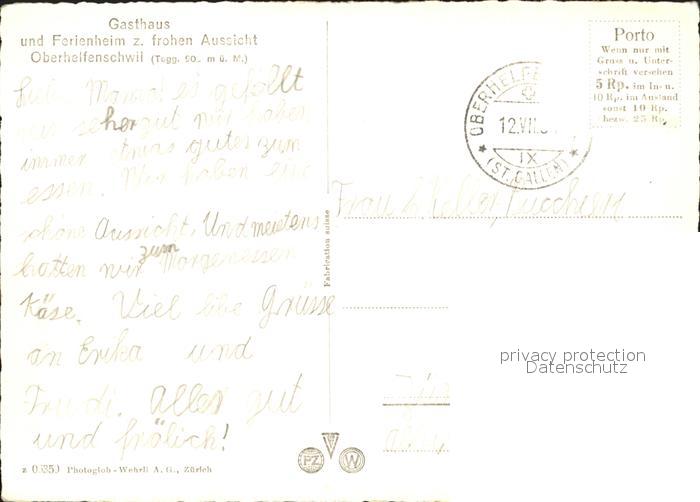 Gasthaus
und Ferienheim z. frohen Aussicht
Oberhelfenschwil (Togg. 90.. m ü. M.)
Liebe Mama! es gefällt
uns seher gut wir haben
immer etwas gutes zum
essen. Wir haben eine
schöne Aussicht. Und meistens
hatten wir zum Morgenessen
Käse. Viel libe Grüsse
an Erika und
Trudi. Alles gut
und frölich!
z 0635) Photoglob-Wehrli A. G., Zürich
Fabrication suisse
PZ W
OBERHELFE
12.VII.
IX
(ST. GALLEN)
Porto
Wenn nur mit
Gruss u. Unter-
schrift versehen
5 Rp. im In- u.
10 Rp. im Ausland
sonst 10 Rp.
bezw. 25 Rp.
Frau
privacy protection
Datenschutz